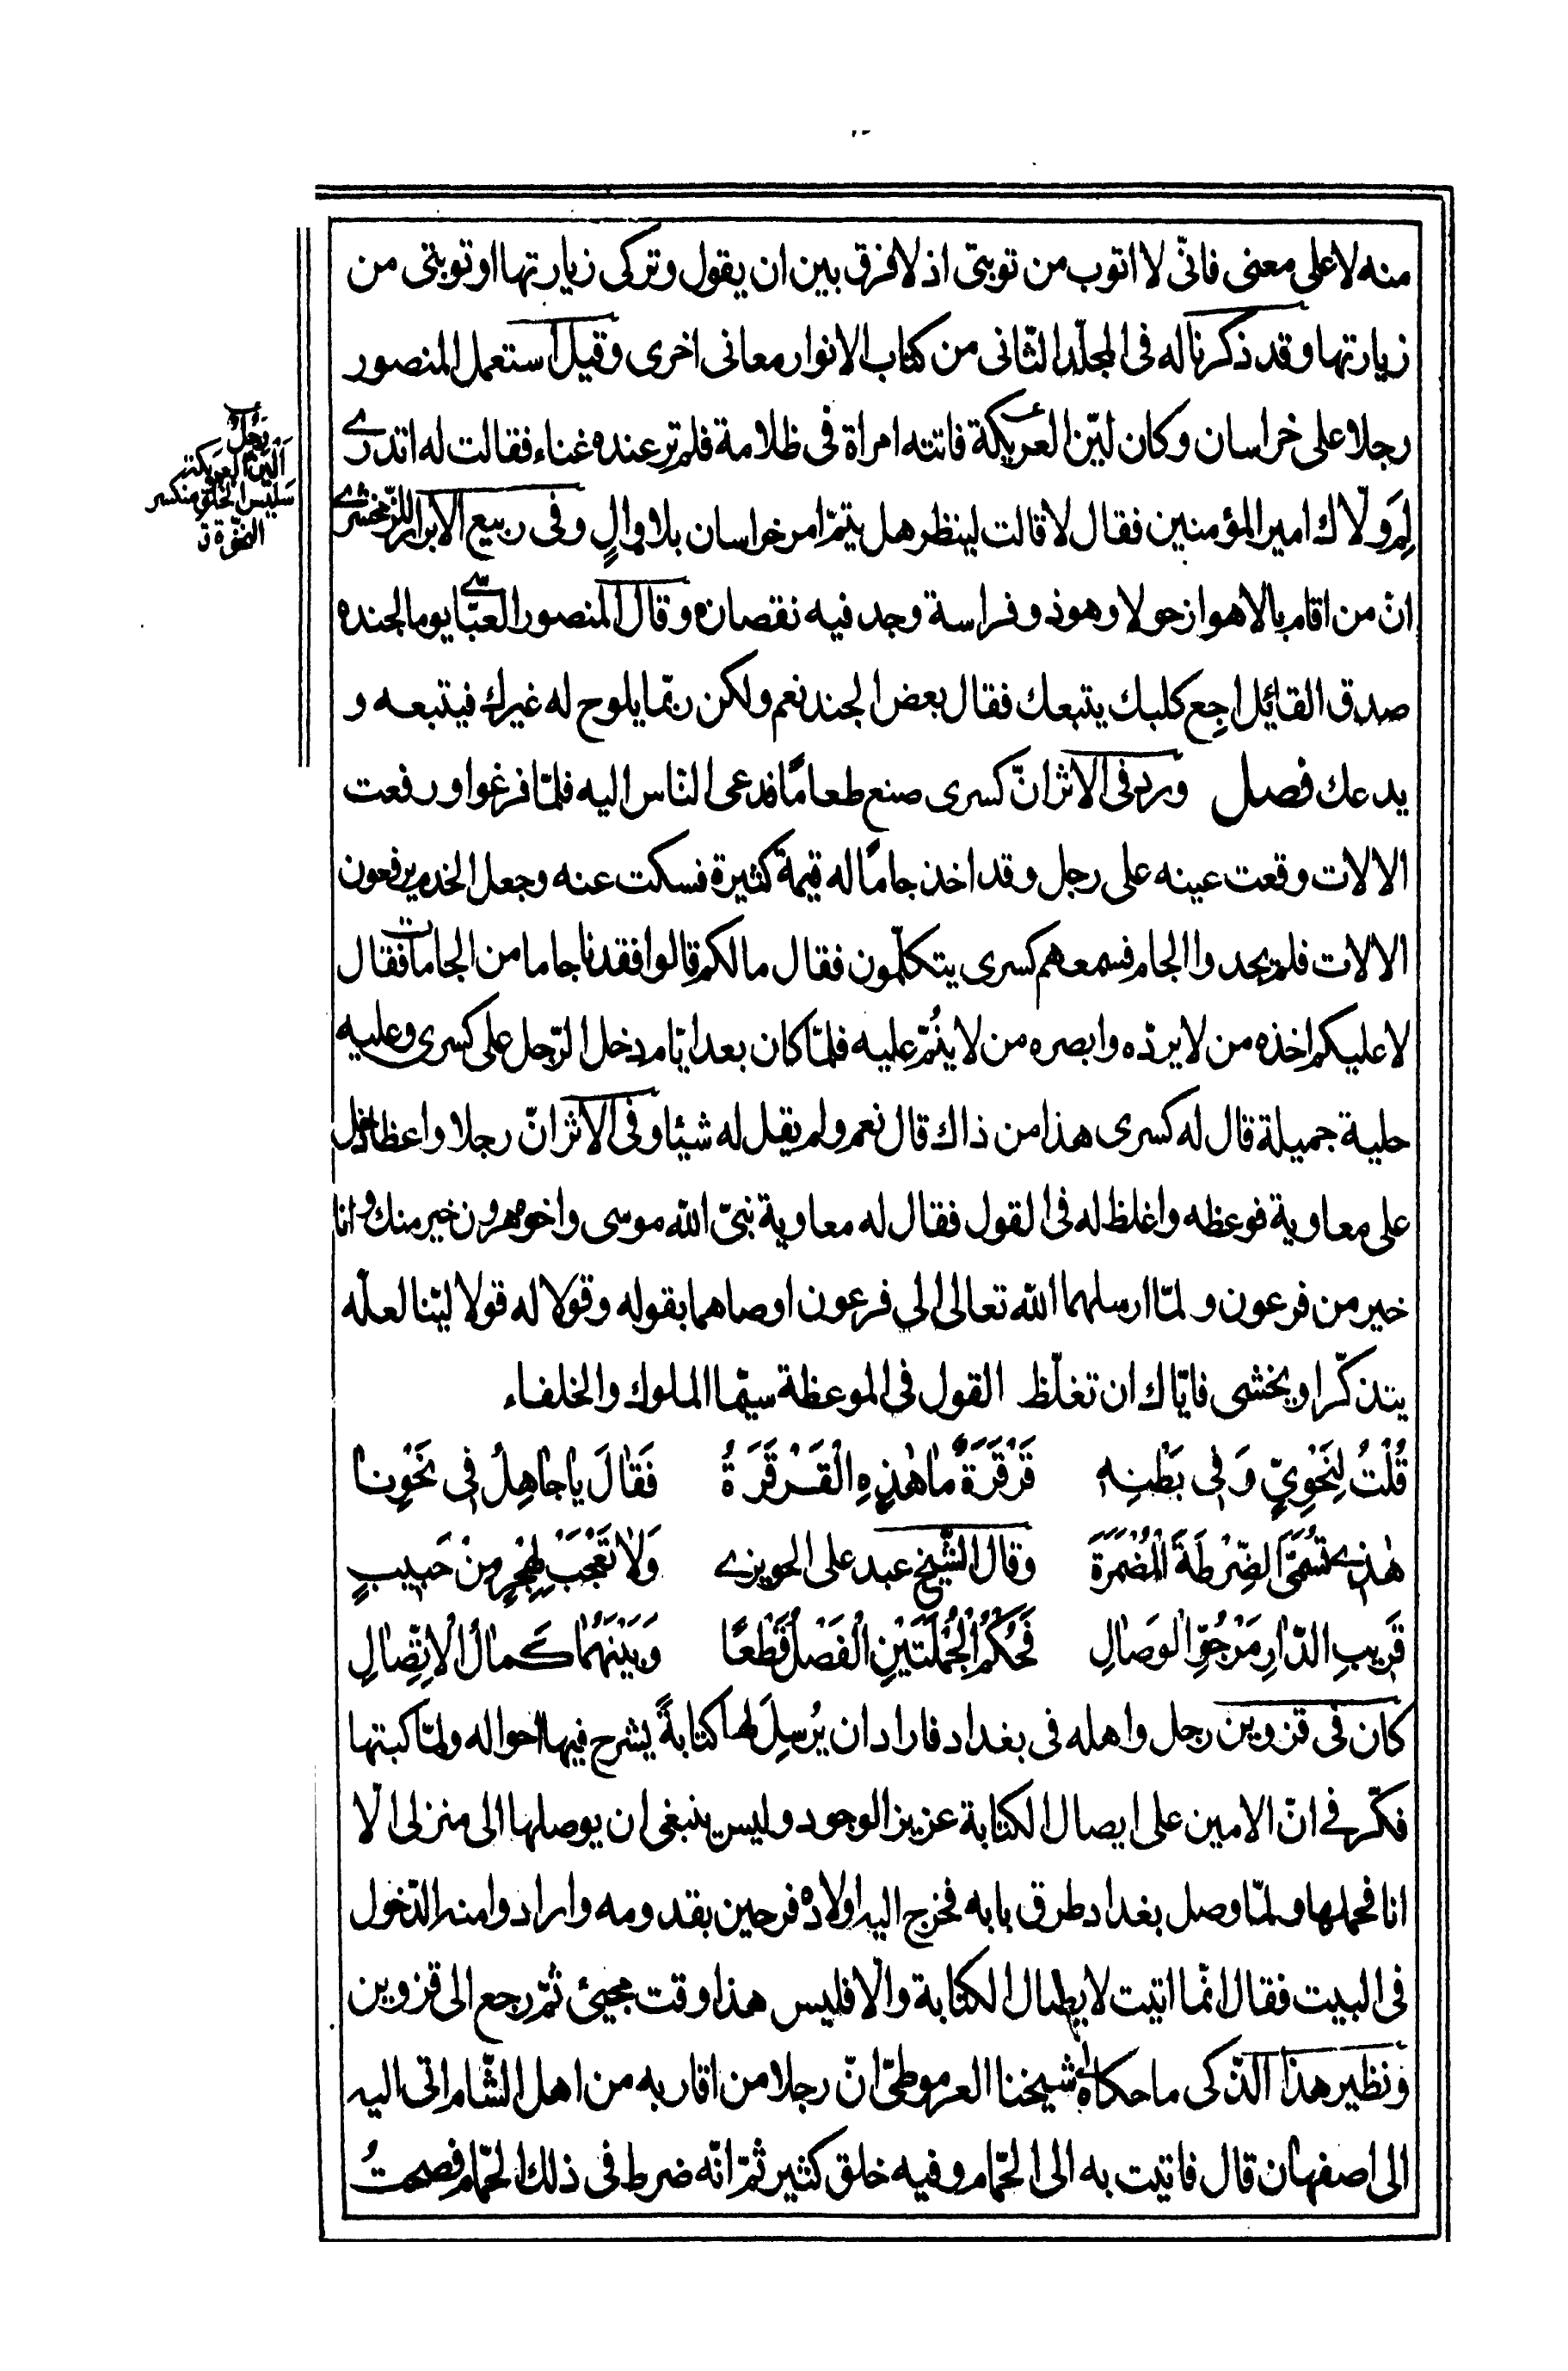 منه لا على معنى فانّى لا اتوب من توبتى اذ لا فرق بين ان يقول وتركى زيارتها او توبتى من
زيارتها وقد ذكرنا له فى المجلّد الثّانى من كتاب الانوار معانى اخرى وقيل استعمل المنصور
رجلا على خراسان وكان ليّن العريكة فاتته امراة فى ظلامة فلم تر عنده غناء فقالت له اتدرى
لِمَ ولّاك امير المؤمنين فقال لا قالت لينظر هل يتمّ امر خراسان بلا والٍ وفى ربيع الابرار للزّمخشرى
انّ من اقام بالاهواز حولا وهو ذو فراسة وجد فيه نقصانه وقال المنصور العبّاسى يوما لجنده
صدق القائل اجع كلبك يتبعك فقال بعض الجند نعم ولكن ربّما يلوح له غيرك فيتبعه و
يدعك فصل ورد فى الاثر انّ كسرى صنع طعامًا فدعى النّاس اليه فلمّا فرغوا ورفعت
الالات وقعت عينه على رجل وقد اخذ جامًا له قيمة كثيرة فسكت عنه وجعل الخدم يرفعون
الالات فلم يجدوا الجام فسمعهم كسرى يتكلّمون فقال مالكم قالوا فقدنا جاما من الجامات فقال
لا عليكم اخذه من لا يردّه وابصره من لا ينُمّ عليه فلمّا كان بعد ايّام دخل الرّجل على كسرى وعليه
حلية جميلة قال له كسرى هذا من ذاك قال نعم ولم يقل له شيئا وفى الاثر انّ رجلا واعظا دخل
على معاوية فوعظه واغلظ له فى القول فقال له معاوية نبىّ اللّه موسى واخوه هرون خير منك وانا
خير من فرعون ولمّا ارسلهما اللّه تعالى الى فرعون اوصاهما بقوله وقولا له قولا ليّنا لعلّه
يتذكّر او يخشى فايّاك ان تغلّظ القول فى الموعظة سيّما الملوك والخلفاء
قُلْتُ لِنَحْوِيٍّ وَفِى بَطْنِهِ قَرْقَرَةٌ مَا هٰذِهِ الْقَرْقَرَةُ فَقَالَ يَا جَاهِلُ فِى نَحْوِنَا
هٰذِى تُسَمَّى الضِّرْطَةَ الْمُضْمَرَةَ وقال الشّيخ عبد على الحويزى وَلَا تَعْجَبْ لِهَجْرٍ مِنْ حَبِيبٍ
قَرِيبِ الدَّارِ مَرْجُوِّ الْوِصَالِ فَحُكْمُ الْجُمْلَتَيْنِ الْفَصْلُ قَطْعًا وَبَيْنَهُمَا كَمَالُ الْاِتِّصَالِ
كان فى قزوين رجل واهله فى بغداد فاراد ان يُرسِلَ لها كتابةً يشرح فيها احواله ولمّا كتبتها
فكّر فى انّ الامين على ايصال الكتابة عزيز الوجود وليس ينبغى ان يوصلها الى منزلى الّا
انا فحملها ولمّا وصل بغداد طرق بابه فخرج اليه اولاده فرحين بقدومه وارادوا منه الدّخول
فى البيت فقال انّما اتيت لايصال الكتابة والّا فليس هذا وقت مجيئى ثمّ رجع الى قزوين
ونظير هذا الذّكى ما حكاه شيخنا العرموطىّ انّ رجلا من اقاربه من اهل الشّام اتى اليه
الى اصفهان قال فاتيت به الى الحمّام وفيه خلق كثير ثمّ انّه ضرط فى ذلك الحمّام فصحتُ
رَجُلٌ
لَيِّنُ العريكة
سَلِيس الخلق منكسر
النخوة ق